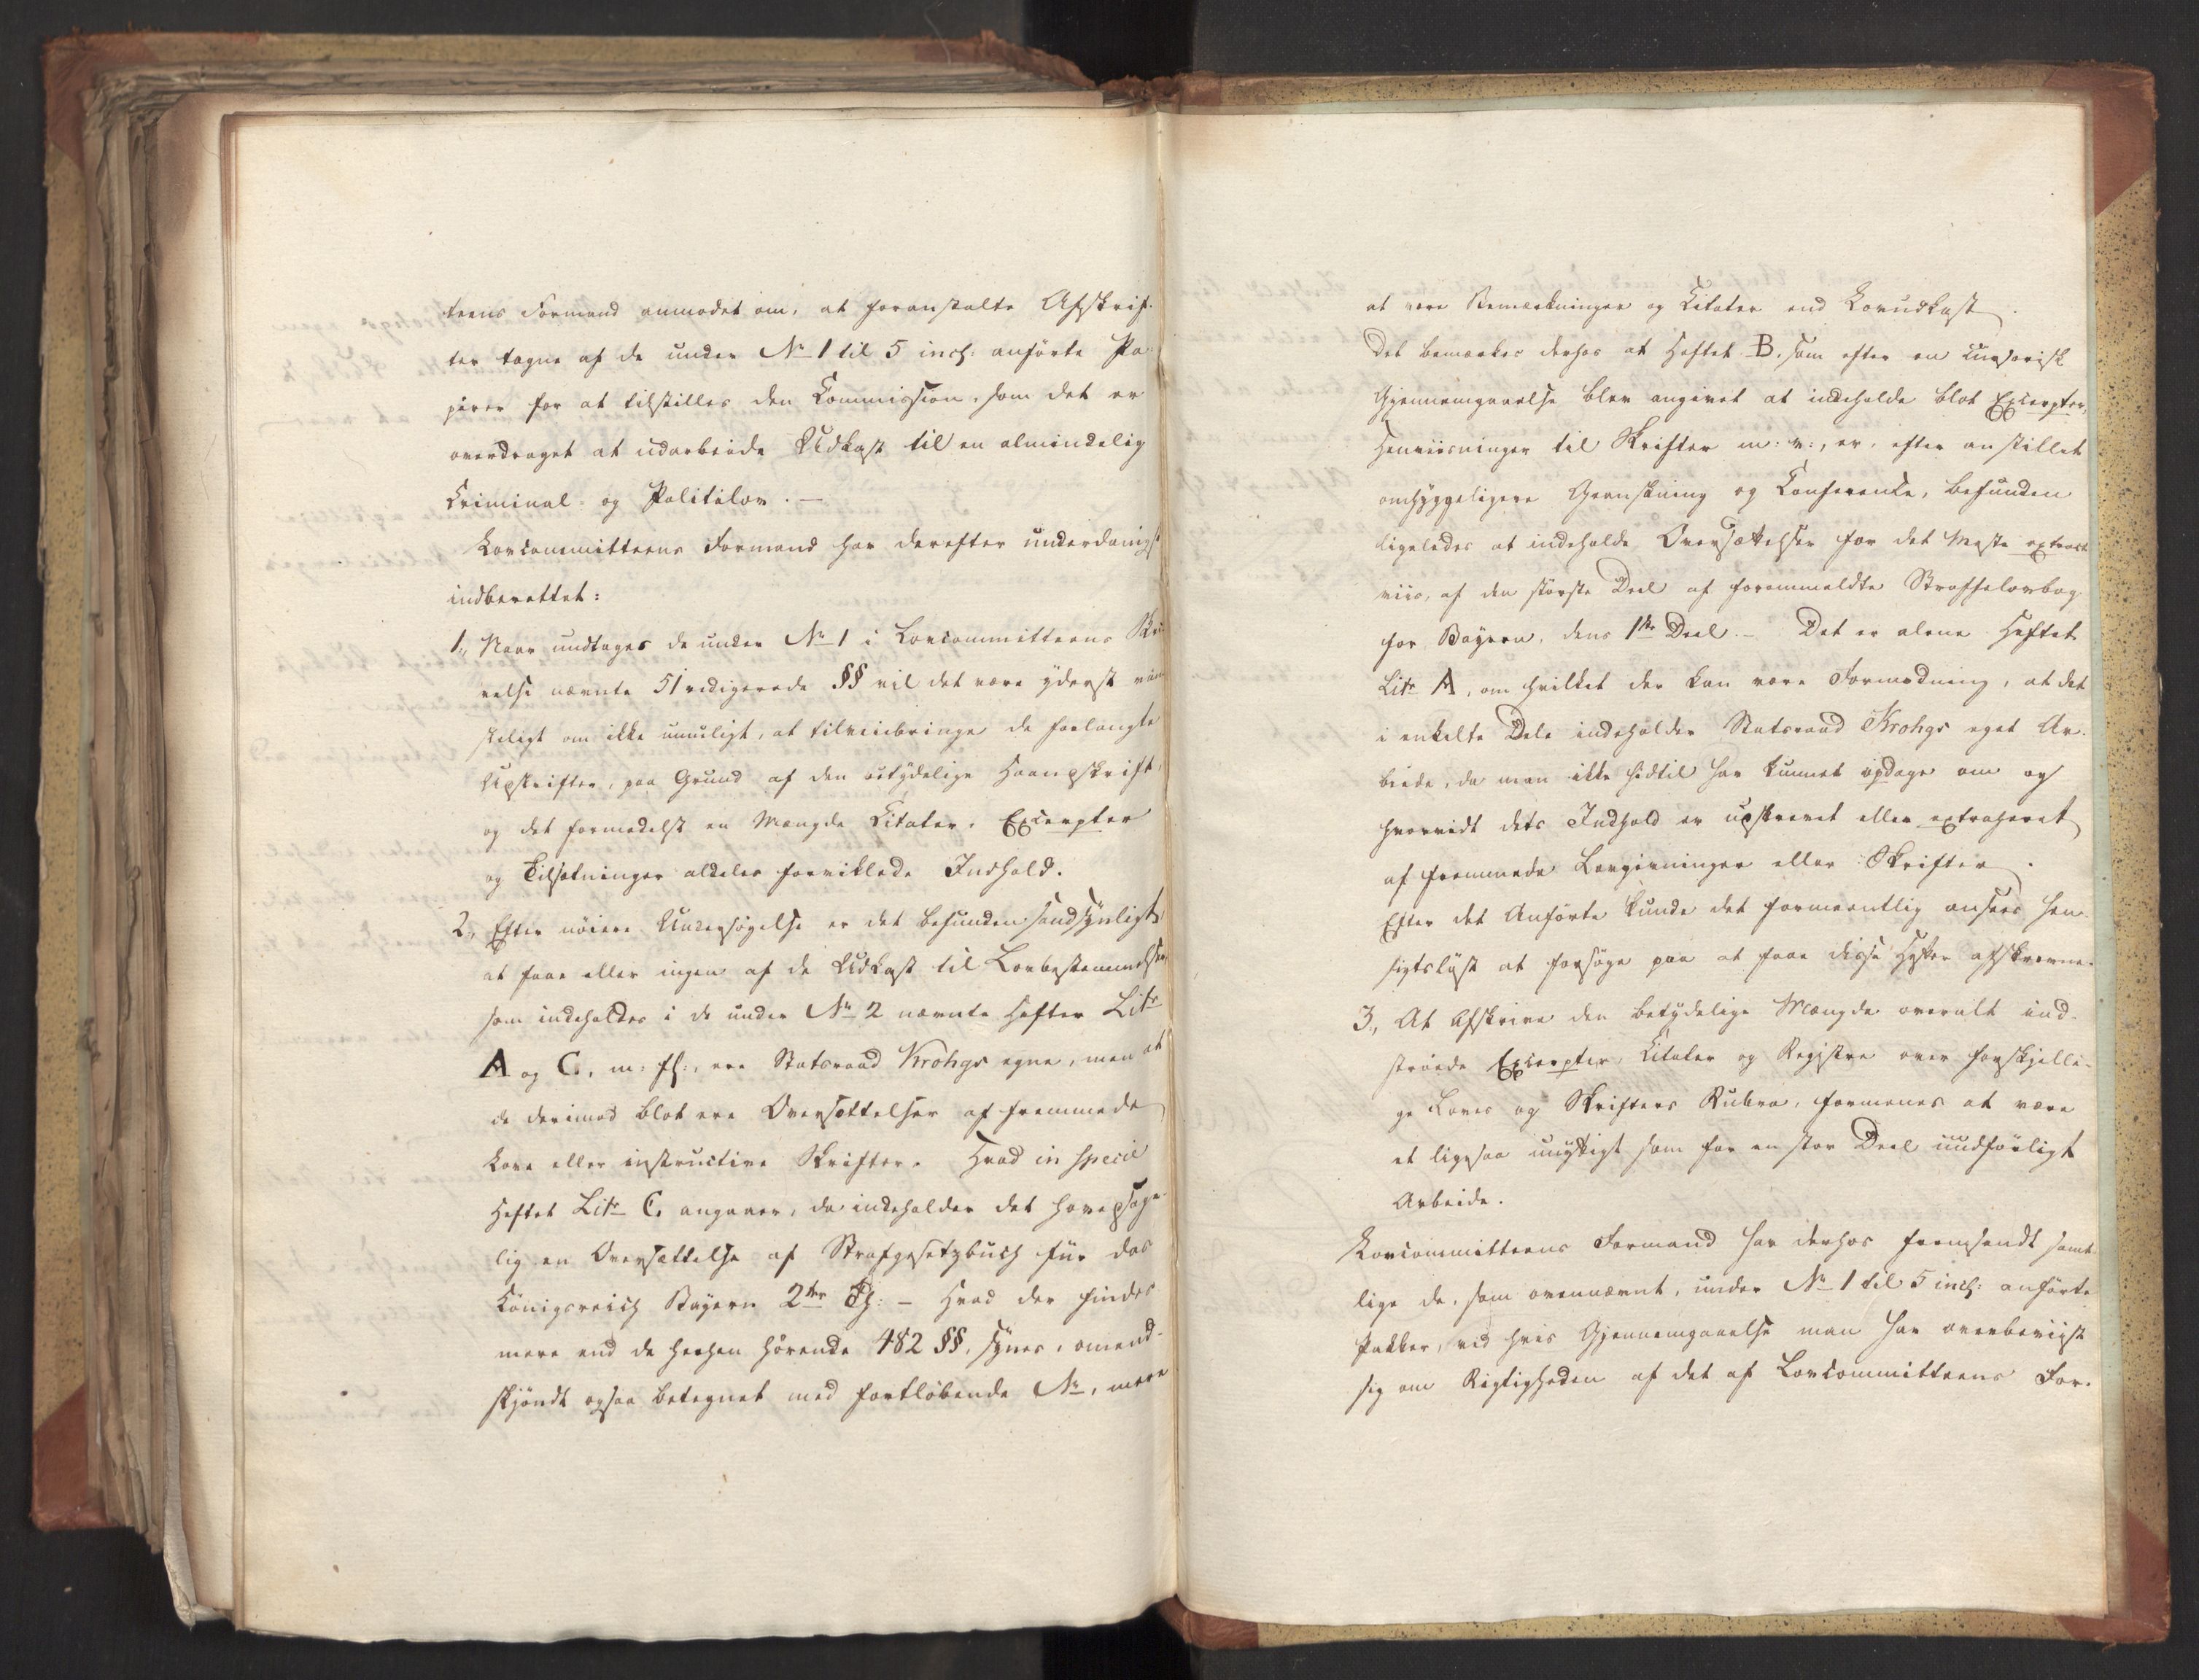 teens Formand anmodet om, at foranstalte Afskrif-
ter tagne af de under No 1 til 5 incl: anførte Pa-
pirer for at tilstilles den Commission, som det er
overdraget at udarbeide Udkast til en almindelig
Criminal- og Politilov. —
Lovcommitteens Formand har derefter underdanigst
indberettet:
1., Naar undtages de under No 1 i Lovcommitteens Skri-
velse nævnte 51 redigerede §§ vil det være yderst van-
skeligt om ikke umuligt, at tilveiebringe de forlangte
Afskrifter, paa Grund af den utydelige Haandskrift,
og det formedelst en Mængde Citater, Excerpter
og Tilsætninger aldeles forviklede Indhold.
2., Efter nøiere Undersøgelse er det befunden sandsynligt,
at faae eller ingen af de Udkast til Lovbestemmelser,
som indeholdes i de under No 2 nævnte Hefter Litr
A og C, m: fl:, ere Statsraad Krohgs egne, men at
de derimod blot ere Oversættelser af fremmede
Love eller instructive Skrifter. Hvad in specie
Heftet Litr C. angaaer, da indeholder det hovedsage-
lig en Oversættelse af Strafgesetzbuch für das
Königsreich Bayern 2ter Th: — Hvad der findes
mere end de herhen hørende 482 §§, synes, omend-
skjøndt ogsaa betegnet med fortløbende No, mere
at være Bemærkninger og Citater end Lovudkast.
Det bemærkes derhos at Heftet B, som efter en cursorisk
Gjennemgaaelse blev angivet at indeholde blot Excerpter,
Henviisninger til Skrifter m: v:, er, efter anstillet
omhyggeligere Granskning og Conference, befunden
ligeledes at indeholde Oversættelser for det Meste extract-
viis, af den største Deel af forommeldte Straffelovbog
for Bayern, dens 1ste Deel. — Det er alene Heftet
Litr A, om hvilket der kan være Formodning, at det
i enkelte Dele indeholder Statsraad Krohgs eget Ar-
beide, da man ikke hidtil har kunnet opdage om og
hvorvidt dets Indhold er udskrevet eller extraheret
af fremmede Lovgivninger eller Skrifter.
Efter det Anførte kunde det formeentlig ansees hen-
sigtsløst at forsøge paa at faae disse Hefter afskrevne.
3., At Afskrive den betydelige Mængde overalt ind-
strøede Excerpter, Citater og Registre over forskjelli-
ge Loves og Skrifters Rubra, formenes at være
et ligesaa unyttigt som for en stor Deel uudførligt
Arbeide.
Lovcommitteens Formand har derhos fremsendt samt-
lige de, som ovennævnt, under No 1 til 5 incl: anførte
Pakker, ved hvis Gjennemgaaelse man har overbeviist
sig om Rigtigheden af det af Lovcommitteens For-